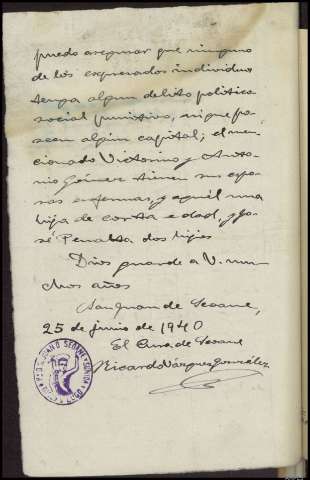 puedo asegurar que ninguno
de los expresados individuos
tenga algun delito politico
social punitivo, ni que po-
seen algún capital; el men-
cionado Victorino y Anto-
nio Gómez tienen sus espo-
sas enfermas, y aquél una
hija de corta edad, y Jo-
sé Penalta dos hijos
Dios guarde a V. mu-
chos años
San Juan de Seoane,
25 de junio de 1940
El Cura de Seoane
Ricardo Vázquez González